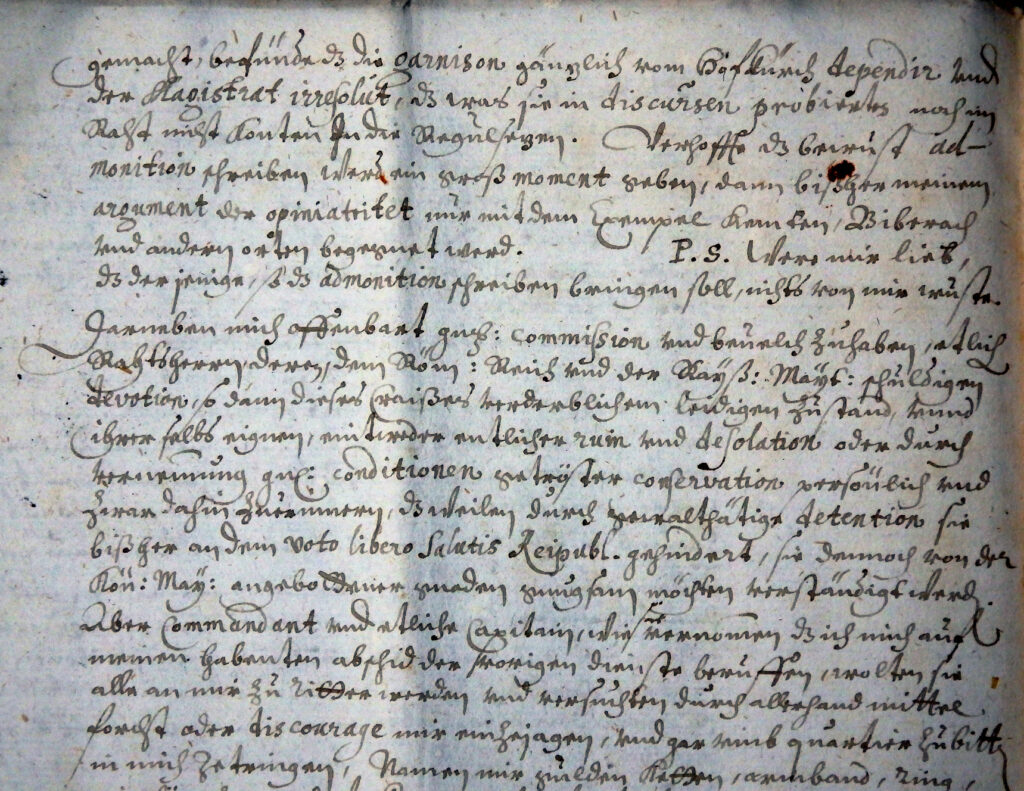 gemacht, befünde dz die garnison gäntzlich vom dependir vnd
der Magistrat irresolut, dz was sie in discursen probierten noch im
Raht nicht konten In die Regul setzen. Verhoffe dz bewust ad-
monition schreiben werd ein groß moment geben, dann bißher meinem
argument der opiniatritet nur mit dem Exempel Kempten, Biberach
vnd andern orten begegnet werd. P.S. Were mir lieb,
dz der jenige, so dz admonition schreiben bringen soll, nichts von mir wuste.
Darneben mich offenbart gnd: commission vnd beuelch zuhaben, etlich
Rahtsherrn, deren, dem Röm: Reich vnd der Kayß: Mayt: schuldigen
devotion, so dann dieses Craißes verderblichem leidigen zustand, vnnd
ihrer selbs eignen, entweder entlicher ruin vnd desolation oder durch
vernemmung gnd: conditionen getröster conservation persönlich vnd
zwar dahin zuerinnern, dz weilen durch gewalthätige detention sie
bißher an dem voto libero Salutis Reipubl. gehindert, sie dennoch von der
Kön: May: angebottener gnaden gnugsam möchten verständigt werden.
Aber Commandant vnd etliche Capitain, wie sie vernommen dz ich mich auf
meinen habenten abschid der vorigen dienste beruffen, wolten sie
alle an mir zu ritter werden vnd versuchten durch allerhand mittel
forcht oder discourage mir einzejagen, vnd gar vmb quartier zubitten
in mich zetringen, Namen mir gulden Ketten, armband, ring,